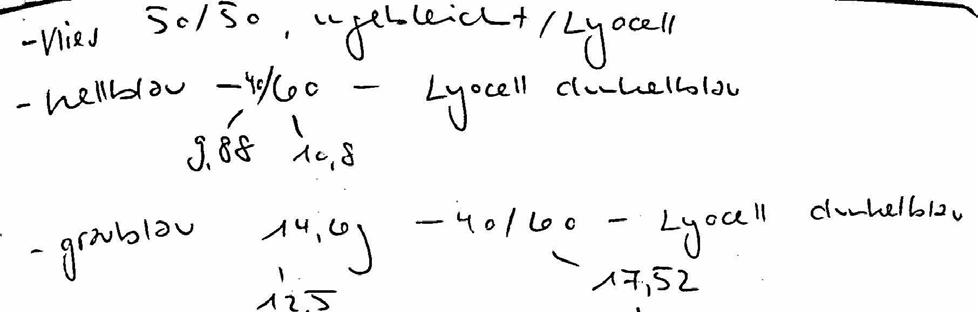 -Vlies 50/50, ungebleicht/Lyocell
- hellblau - 40/60 - Lyocell dunkelblau
9,88 10,8
- graublau 14,6g - 40/60 - Lyocell dunkelblau
12,5 17,52